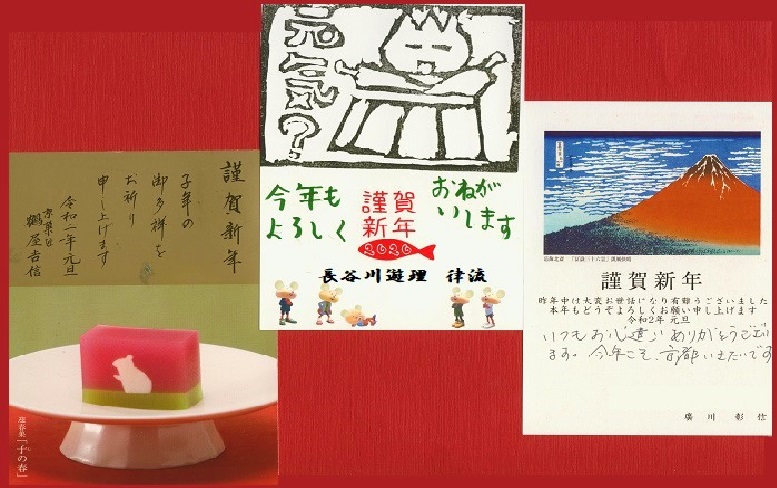 謹賀新年
子年の
御多祥を
お祈り
申し上げます
令和二年元旦
京菓匠
鶴屋吉信
迎春菓「子の春」
元気?
今年も
よろしく
謹賀
新年
2020
おねが
いします
長谷川遊理 律流
葛飾北斎 「冨嶽三十六景」凱風快晴
謹賀新年
昨年中は大変お世話になり有難うございました
本年もどうぞよろしくお願い申し上げます
令和2年 元旦
いつもお心遣いありがとうござい
ます。今年こそ、京都いきたいです
川 彰信